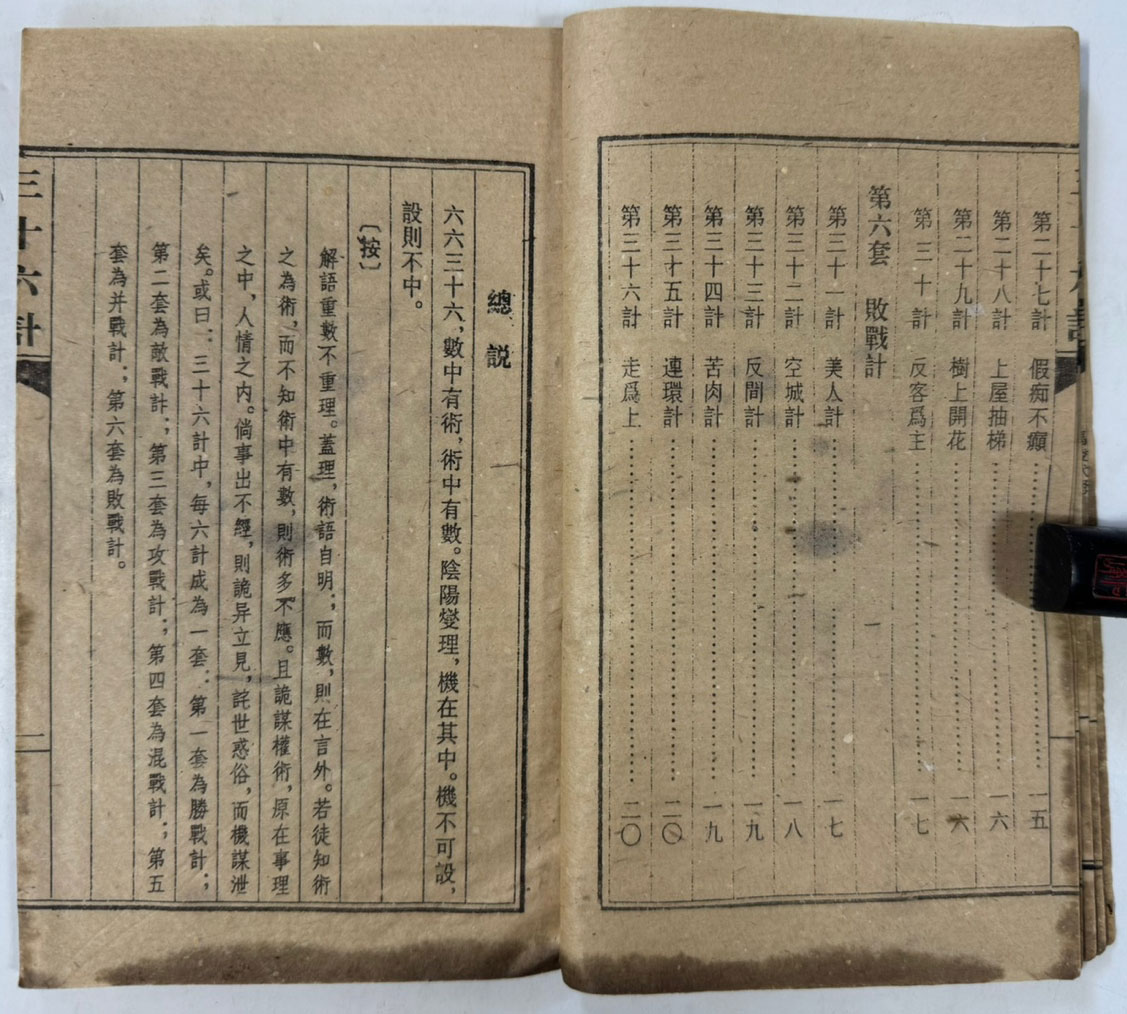 第二十七計 假痴不癲…一五
第二十八計 上屋抽梯…一六
第二十九計 樹上開花…一六
第三十計 反客爲主…一七
第六套 敗戰計
第三十一計 美人計…一七
第三十二計 空城計…一八
第三十三計 反間計…一九
第三十四計 苦肉計…一九
第三十五計 連環計…二〇
第三十六計 走爲上…二〇
總說
六六三十六，數中有術，術中有數。陰陽燮理，機在其中。機不可設，
設則不中。
〔按〕
解語重數不重理。蓋理，術語自明；而數，則在言外。若徒知術
之為術，而不知術中有數，則術多不應。且詭謀權術，原在事理
之中，人情之内。倘事出不經，則詭异立見，詫世惑俗，而機謀泄
矣。或曰：三十六計中，每六計成為一套。第一套為勝戰計；
第二套為敵戰計；第三套為攻戰計；第四套為混戰計；第五
套為并戰計；第六套為敗戰計。
三十六計
一